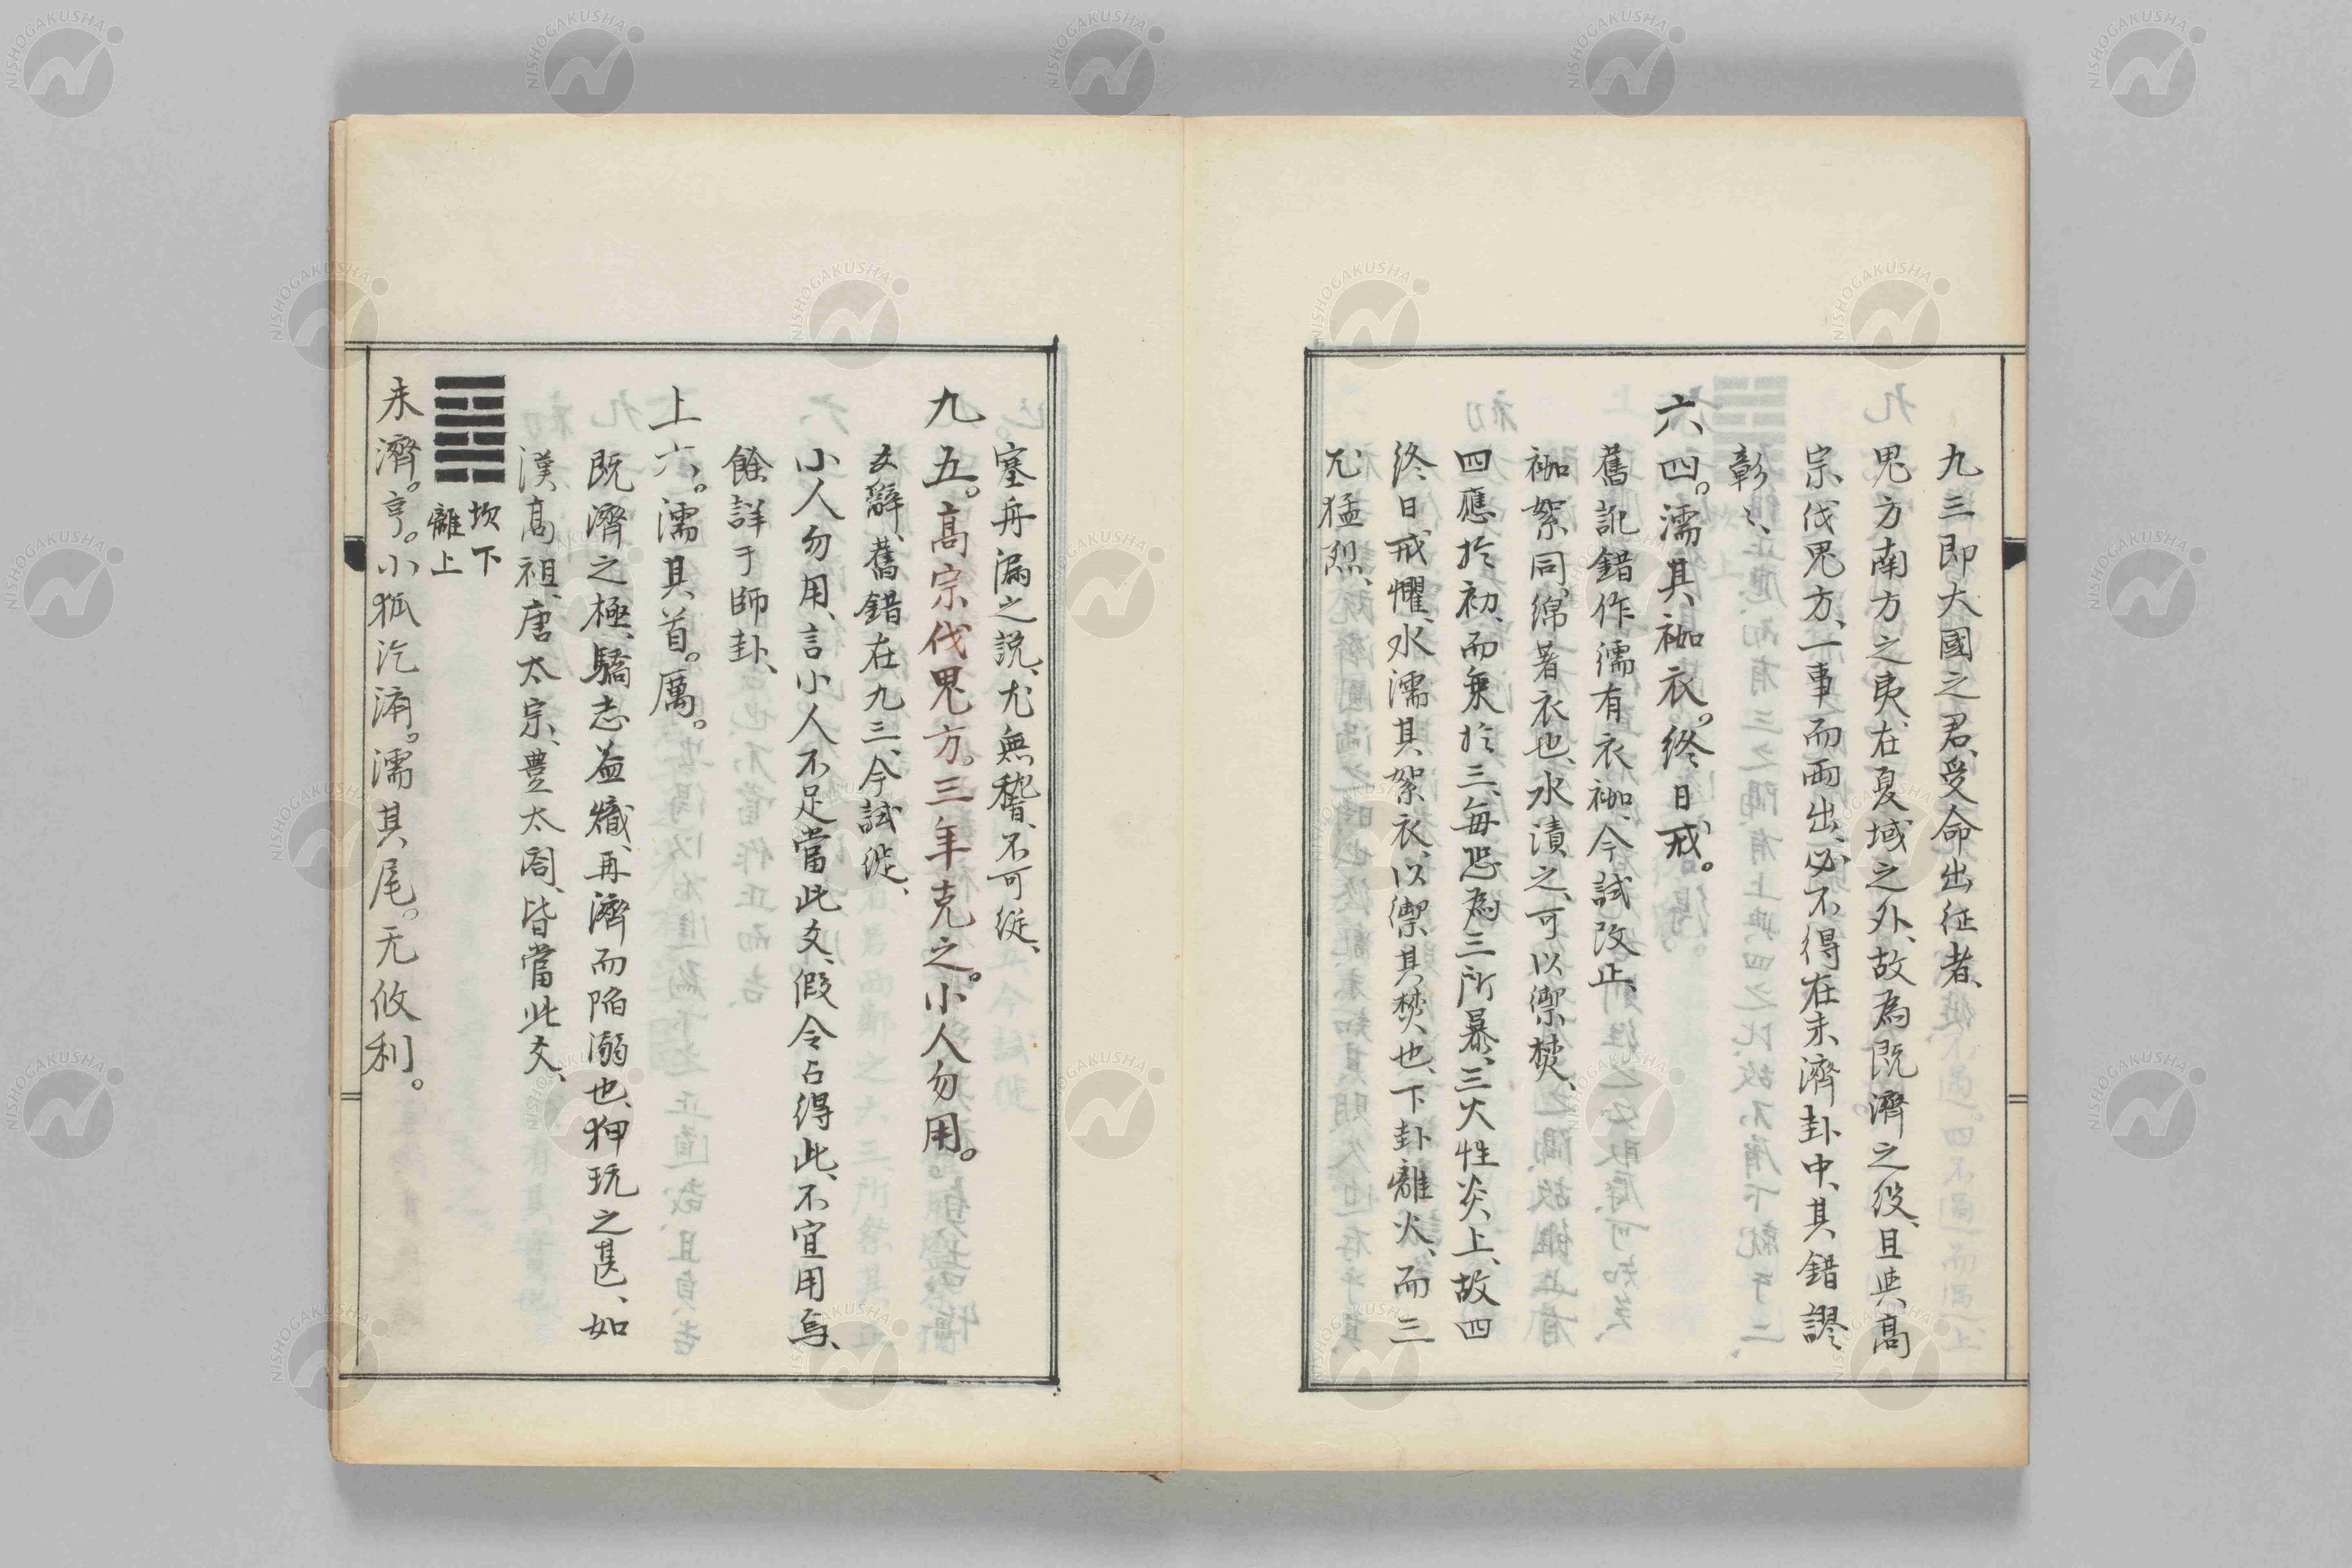 九三即大國之君、受命出征者、
鬼方南方之夷、在夏域之外、故為既濟之役、且與高
宗伐鬼方、一事而兩出、必不得在未濟卦中、其錯謬
彰々、
六四。濡其袽衣。終日戒。
舊訛錯作繻有衣袽、今試改正、
袽絮同。綿著衣也、水漬之、可以禦焚、
四應於初、而乗於三、毎恐為三所暴、三火性炎上、故四
終日戒懼、水濡其絮衣、以禦其焚也、下卦離火、而三
尤猛烈、
塞舟漏之説、尤無稽、不可従、
九五。高宗伐鬼方。三年克之。小人勿用。
爻辭、舊錯在九三、今試従、
小人勿用、言小人不足當此爻、假令占得此、不宜用焉、
餘詳于師卦、
上六。濡其首。厲。
既濟之極、驕志益熾、再濟而陥溺也、狎玩之甚、如
漢高祖、唐太宗、豊太閤、皆當此爻、
坎下
離上
未濟。亨。小狐汔濟。濡其尾。无攸利。
NISHOGAKUSHA